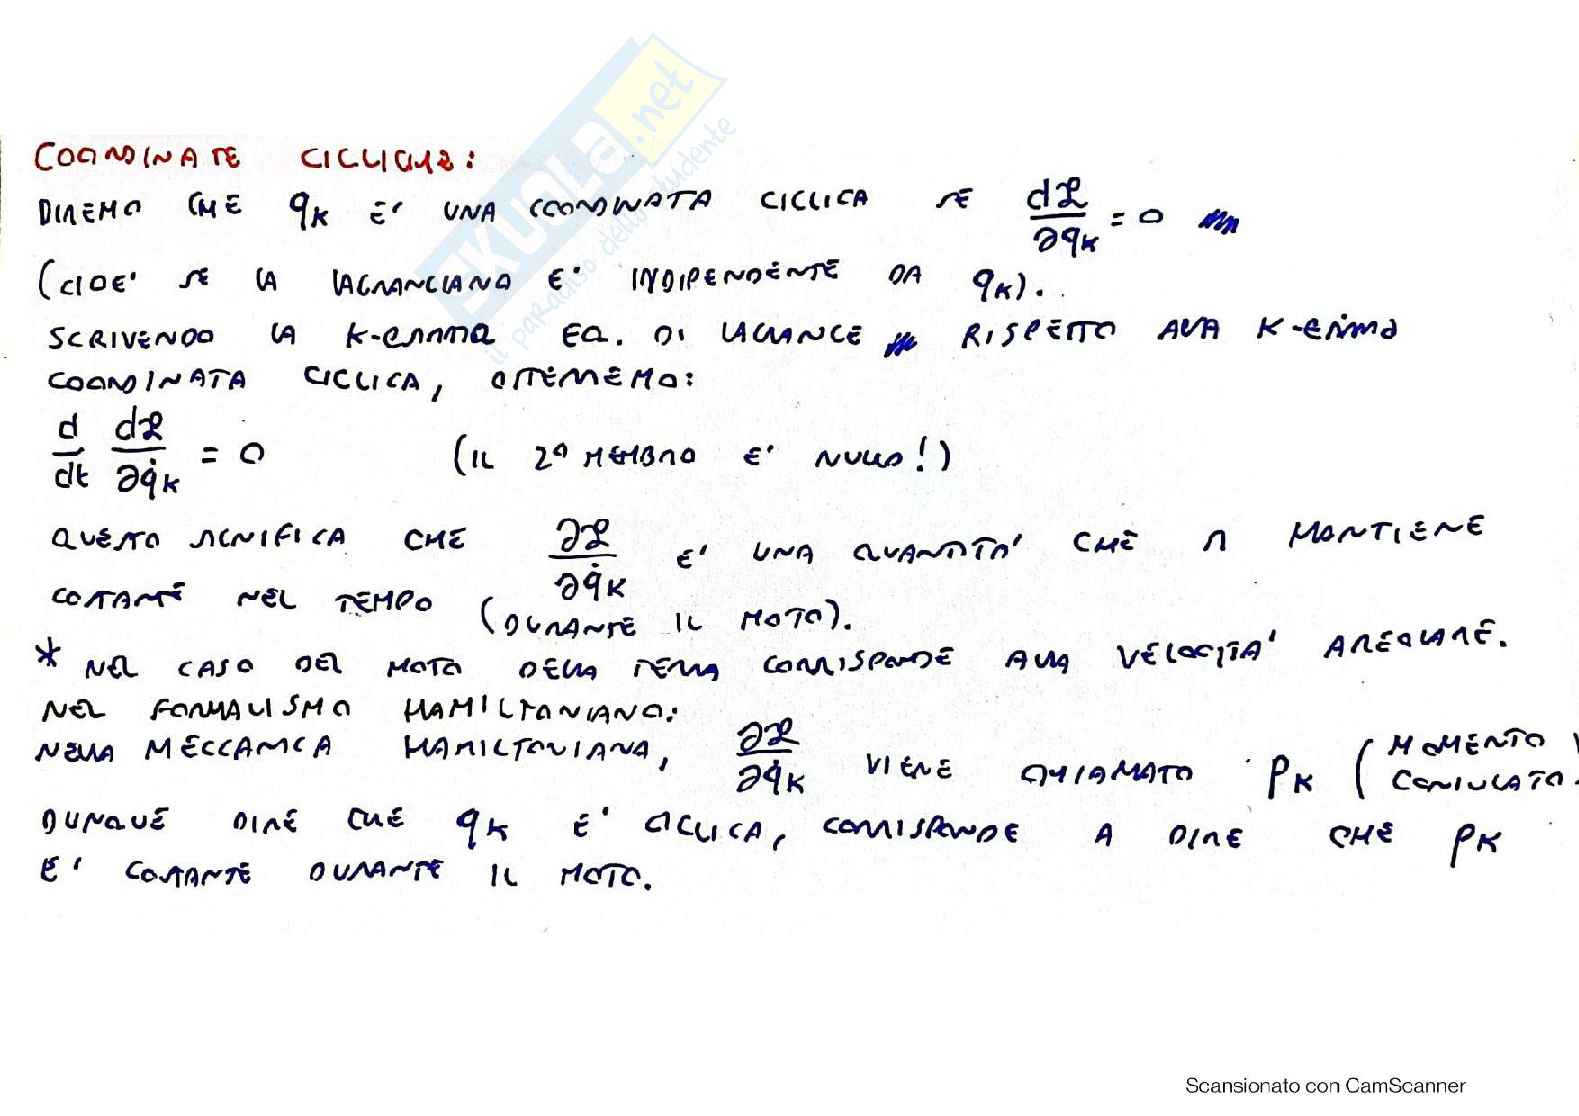 COORDINATE CICLICHE:
DIREMO CHE qK E' UNA COORDINATA CICLICA SE d𝓛/∂qK = 0
(CIOE' SE LA LAGRANGIANA E' INDIPENDENTE DA qK).
SCRIVENDO LA K-esima EQ. DI LAGRANGE RISPETTO ALLA K-esima
COORDINATA CICLICA, OTTERREMO:
d/dt d𝓛/∂q̇K = 0 (IL 2° MEMBRO E' NULLO!)
QUESTO SIGNIFICA CHE ∂𝓛/∂q̇K E' UNA QUANTITA' CHE SI MANTIENE
COSTANTE NEL TEMPO (DURANTE IL MOTO).
* NEL CASO DEL MOTO DELLA TERRA CORRISPONDE ALLA VELOCITA' AREOLARE.
NEL FORMALISMO HAMILTONIANO:
NELLA MECCANICA HAMILTONIANA, ∂𝓛/∂q̇K VIENE CHIAMATO PK (MOMENTO CONIUGATO).
DUNQUE DIRE CHE qK E' CICLICA, CORRISPONDE A DIRE CHE PK
E' COSTANTE DURANTE IL MOTO.
SKUOLA.net
il paradiso dello studente
Scansionato con CamScanner